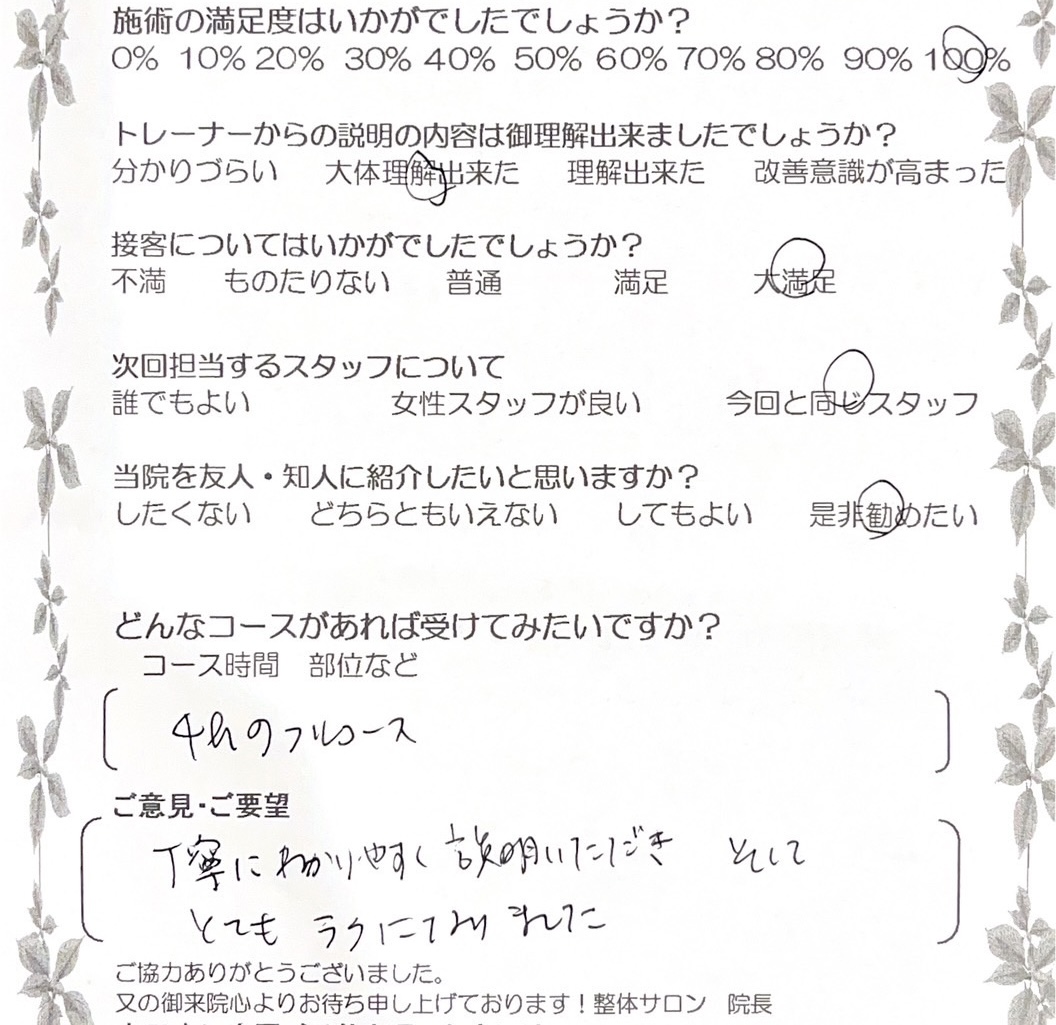 施術の満足度はいかがでしたでしょうか？
0% 10% 20% 30% 40% 50% 60% 70% 80% 90% 100%
トレーナーからの説明の内容は御理解出来ましたでしょうか？
分かりづらい 大体理解出来た 理解出来た 改善意識が高まった
接客についてはいかがでしたでしょうか？
不満 ものたりない 普通 満足 大満足
次回担当するスタッフについて
誰でもよい 女性スタッフが良い 今回と同じスタッフ
当院を友人・知人に紹介したいと思いますか？
したくない どちらともいえない してもよい 是非勧めたい
どんなコースがあれば受けてみたいですか？
コース時間 部位など
4hのフルコース
ご意見・ご要望
丁寧にわかりやすく説明いただき そして
とても ラクになりました
ご協力ありがとうございました。
又の御来院心よりお待ち申し上げております！整体サロン 院長